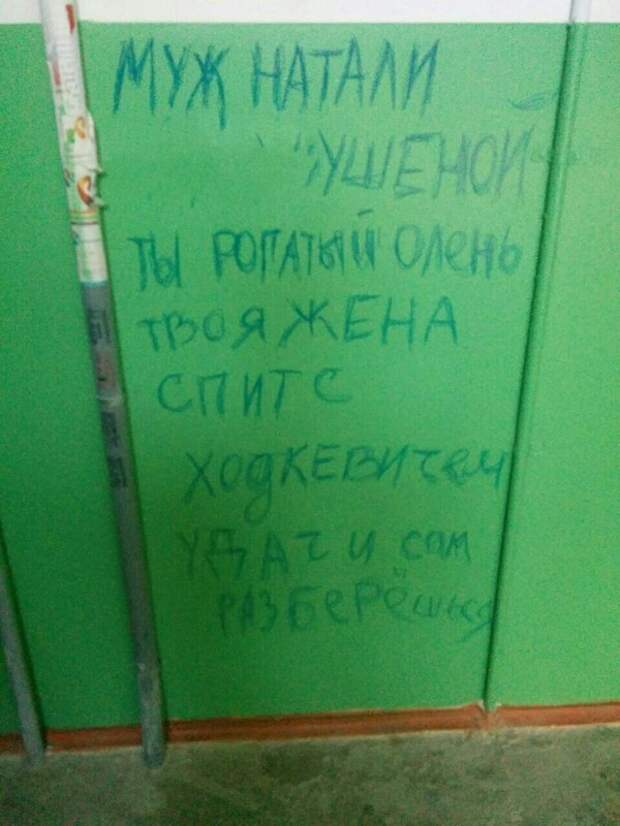 МУЖ НАТАЛИ
УШЕНОЙ
ТЫ РОГАТЫЙ ОЛЕНЬ
ТВОЯ ЖЕНА
СПИТ С
ХОДКЕВИЧЕМ
УДАЧИ САМ
РАЗБЕРЁШЬСЯ